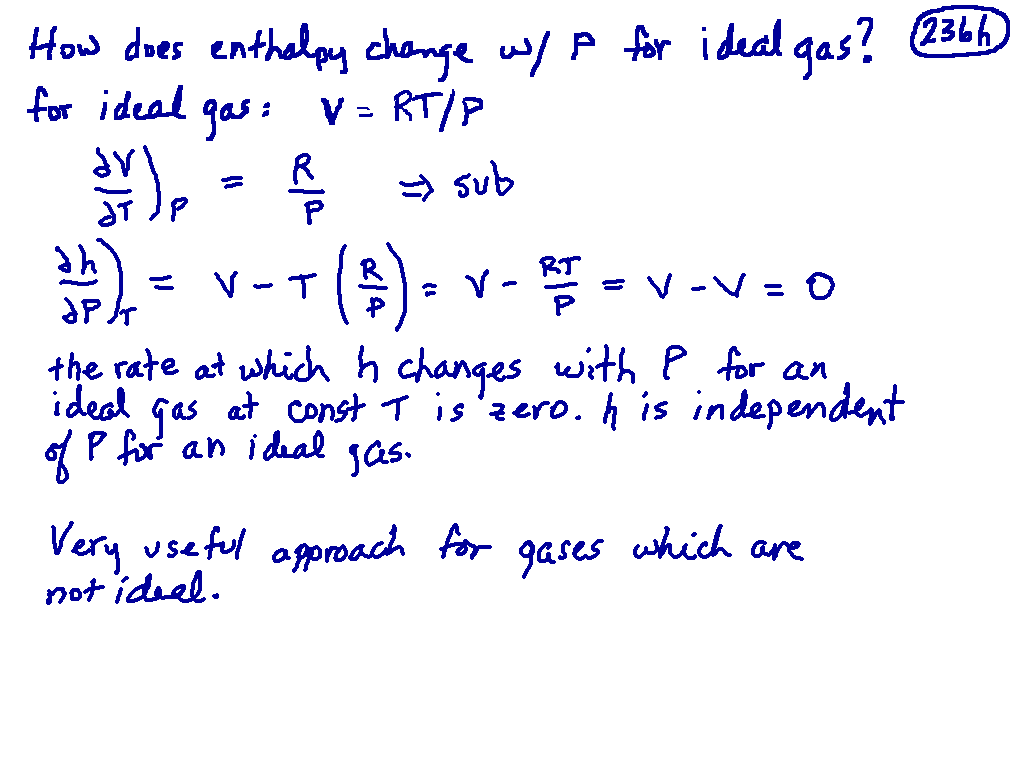 How does enthalpy change w/ P for ideal gas? 236h
for ideal gas: V = RT/P
∂V/∂T)P = R/P ⇒ sub
∂h/∂P)T = V - T (R/P) = V - RT/P = V - V = 0
the rate at which h changes with P for an
ideal gas at const T is zero. h is independent
of P for an ideal gas.
Very useful approach for gases which are
not ideal.